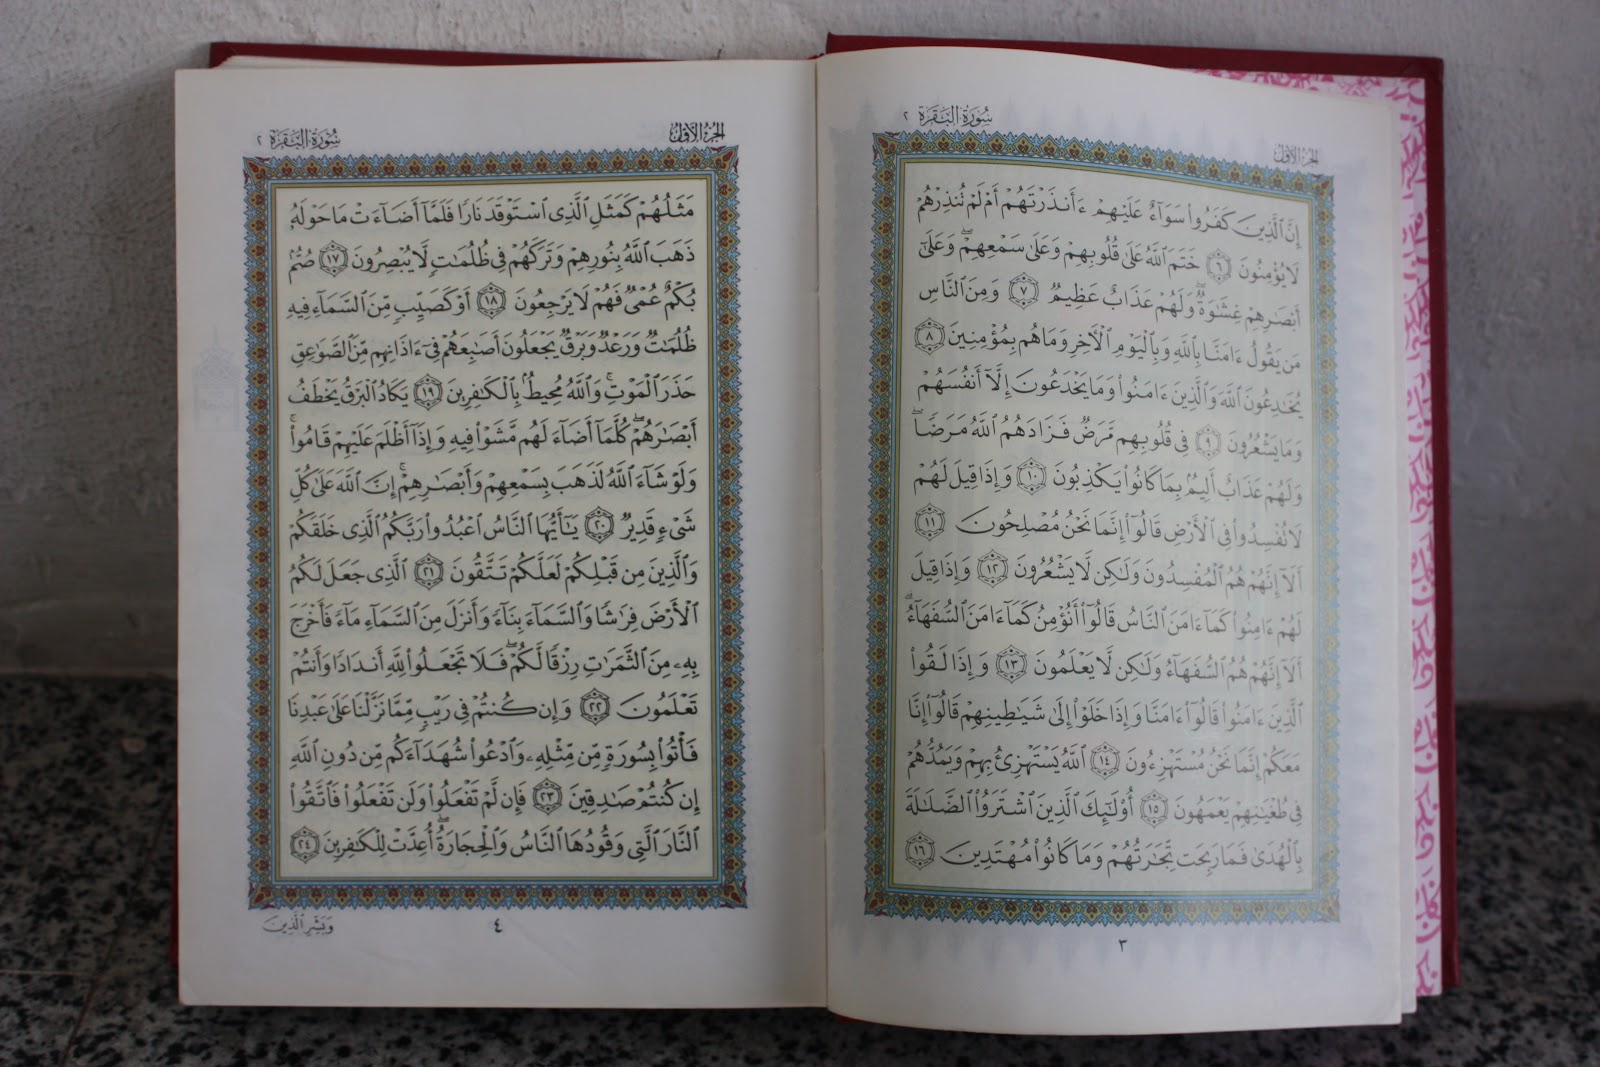 سُورَةُ البَقَرَةِ ٢
الجُزْءُ الأَوَّلُ
إِنَّ ٱلَّذِينَ كَفَرُوا۟ سَوَآءٌ عَلَيْهِمْ ءَأَنذَرْتَهُمْ أَمْ لَمْ تُنذِرْهُمْ
لَا يُؤْمِنُونَ ٦ خَتَمَ ٱللَّهُ عَلَىٰ قُلُوبِهِمْ وَعَلَىٰ سَمْعِهِمْ ۖ وَعَلَىٰٓ
أَبْصَٰرِهِمْ غِشَٰوَةٌ ۖ وَلَهُمْ عَذَابٌ عَظِيمٌ ٧ وَمِنَ ٱلنَّاسِ
مَن يَقُولُ ءَامَنَّا بِٱللَّهِ وَبِٱلْيَوْمِ ٱلْءَاخِرِ وَمَا هُم بِمُؤْمِنِينَ ٨
يُخَٰدِعُونَ ٱللَّهَ وَٱلَّذِينَ ءَامَنُوا۟ وَمَا يَخْدَعُونَ إِلَّآ أَنفُسَهُمْ
وَمَا يَشْعُرُونَ ٩ فِى قُلُوبِهِم مَّرَضٌ فَزَادَهُمُ ٱللَّهُ مَرَضًا ۖ
وَلَهُمْ عَذَابٌ أَلِيمٌۢ بِمَا كَانُوا۟ يَكْذِبُونَ ١٠ وَإِذَا قِيلَ لَهُمْ
لَا تُفْسِدُوا۟ فِى ٱلْأَرْضِ قَالُوٓا۟ إِنَّمَا نَحْنُ مُصْلِحُونَ ١١
أَلَآ إِنَّهُمْ هُمُ ٱلْمُفْسِدُونَ وَلَٰكِن لَّا يَشْعُرُونَ ١٢ وَإِذَا قِيلَ
لَهُمْ ءَامِنُوا۟ كَمَآ ءَامَنَ ٱلنَّاسُ قَالُوٓا۟ أَنُؤْمِنُ كَمَآ ءَامَنَ ٱلسُّفَهَآءُ ۗ
أَلَآ إِنَّهُمْ هُمُ ٱلسُّفَهَآءُ وَلَٰكِن لَّا يَعْلَمُونَ ١٣ وَإِذَا لَقُوا۟
ٱلَّذِينَ ءَامَنُوا۟ قَالُوٓا۟ ءَامَنَّا وَإِذَا خَلَوْا۟ إِلَىٰ شَيَٰطِينِهِمْ قَالُوٓا۟ إِنَّا
مَعَكُمْ إِنَّمَا نَحْنُ مُسْتَهْزِءُونَ ١٤ ٱللَّهُ يَسْتَهْزِئُ بِهِمْ وَيَمُدُّهُمْ
فِى طُغْيَٰنِهِمْ يَعْمَهُونَ ١٥ أُو۟لَٰٓئِكَ ٱلَّذِينَ ٱشْتَرَوُا۟ ٱلضَّلَٰلَةَ
بِٱلْهُدَىٰ فَمَا رَبِحَت تِّجَٰرَتُهُمْ وَمَا كَانُوا۟ مُهْتَدِينَ ١٦
٣
الجُزْءُ الأَوَّلُ
سُورَةُ البَقَرَةِ ٢
مَثَلُهُمْ كَمَثَلِ ٱلَّذِى ٱسْتَوْقَدَ نَارًا فَلَمَّآ أَضَآءَتْ مَا حَوْلَهُۥ
ذَهَبَ ٱللَّهُ بِنُورِهِمْ وَتَرَكَهُمْ فِى ظُلُمَٰتٍ لَّا يُبْصِرُونَ ١٧ صُمٌّۢ
بُكْمٌ عُمْىٌ فَهُمْ لَا يَرْجِعُونَ ١٨ أَوْ كَصَيِّبٍ مِّنَ ٱلسَّمَآءِ فِيهِ
ظُلُمَٰتٌ وَرَعْدٌ وَبَرْقٌ يَجْعَلُونَ أَصَٰبِعَهُمْ فِىٓ ءَاذَانِهِم مِّنَ ٱلصَّوَٰعِقِ
حَذَرَ ٱلْمَوْتِ ۚ وَٱللَّهُ مُحِيطٌۢ بِٱلْكَٰفِرِينَ ١٩ يَكَادُ ٱلْبَرْقُ يَخْطَفُ
أَبْصَٰرَهُمْ ۖ كُلَّمَآ أَضَآءَ لَهُم مَّشَوْا۟ فِيهِ وَإِذَآ أَظْلَمَ عَلَيْهِمْ قَامُوا۟ ۚ
وَلَوْ شَآءَ ٱللَّهُ لَذَهَبَ بِسَمْعِهِمْ وَأَبْصَٰرِهِمْ ۚ إِنَّ ٱللَّهَ عَلَىٰ كُلِّ
شَىْءٍ قَدِيرٌ ٢٠ يَٰٓأَيُّهَا ٱلنَّاسُ ٱعْبُدُوا۟ رَبَّكُمُ ٱلَّذِى خَلَقَكُمْ
وَٱلَّذِينَ مِن قَبْلِكُمْ لَعَلَّكُمْ تَتَّقُونَ ٢١ ٱلَّذِى جَعَلَ لَكُمُ
ٱلْأَرْضَ فِرَٰشًا وَٱلسَّمَآءَ بِنَآءً وَأَنزَلَ مِنَ ٱلسَّمَآءِ مَآءً فَأَخْرَجَ
بِهِۦ مِنَ ٱلثَّمَرَٰتِ رِزْقًا لَّكُمْ ۖ فَلَا تَجْعَلُوا۟ لِلَّهِ أَندَادًا وَأَنتُمْ
تَعْلَمُونَ ٢٢ وَإِن كُنتُمْ فِى رَيْبٍ مِّمَّا نَزَّلْنَا عَلَىٰ عَبْدِنَا
فَأْتُوا۟ بِسُورَةٍ مِّن مِّثْلِهِۦ وَٱدْعُوا۟ شُهَدَآءَكُم مِّن دُونِ ٱللَّهِ
إِن كُنتُمْ صَٰدِقِينَ ٢٣ فَإِن لَّمْ تَفْعَلُوا۟ وَلَن تَفْعَلُوا۟ فَٱتَّقُوا۟
ٱلنَّارَ ٱلَّتِى وَقُودُهَا ٱلنَّاسُ وَٱلْحِجَارَةُ ۖ أُعِدَّتْ لِلْكَٰفِرِينَ ٢٤
٤
وَبَشِّرِ ٱلَّذِينَ